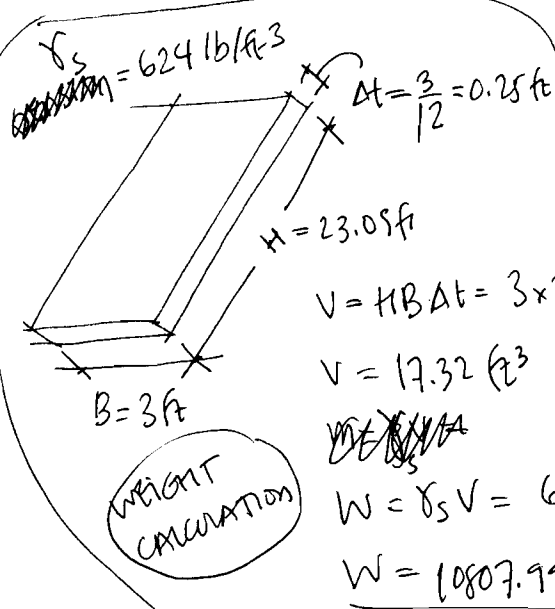 γs = 624 lb/ft3
Δt = 3/12 = 0.25 ft
H = 23.09 ft
V = HBΔt = 3x
V = 17.32 ft³
B = 3 ft
WEIGHT
CALCULATION
W = γsV = 6
W = 10807.99